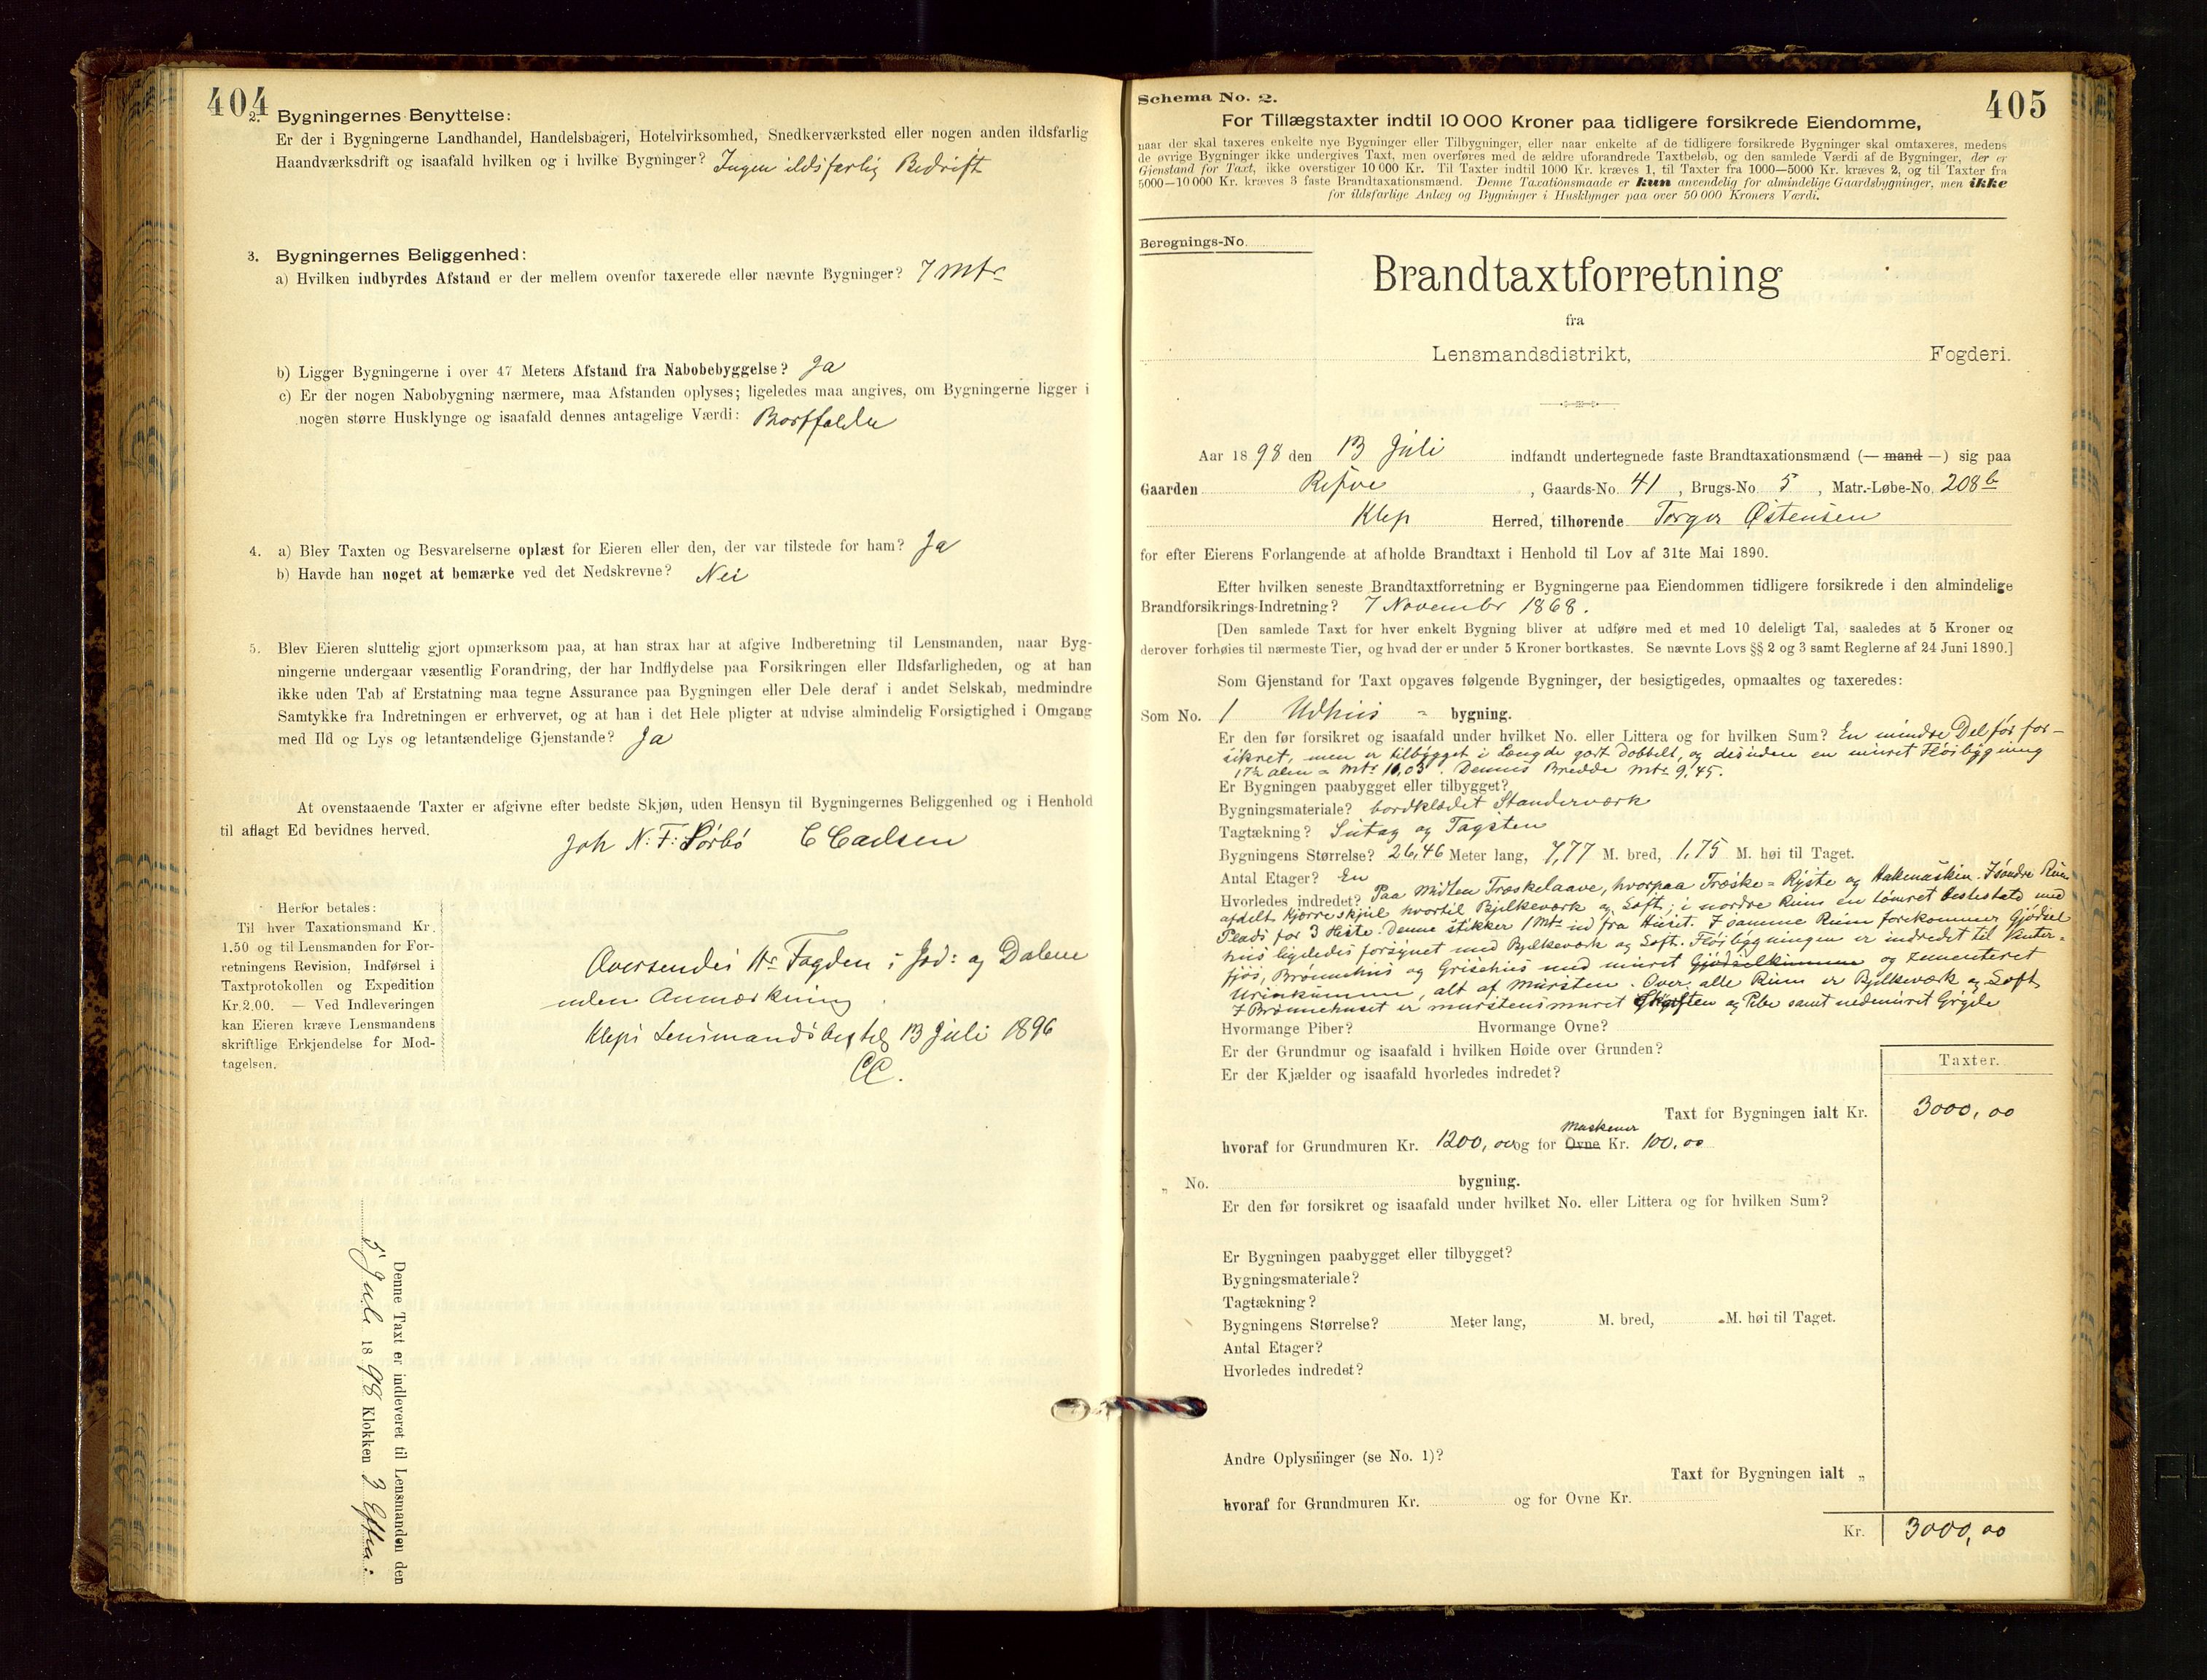 404
2. Bygningernes Benyttelse:
Er der i Bygningerne Landhandel, Handelsbageri, Hotelvirksomhed, Snedkerværksted eller nogen anden ildsfarlig
Haandværksdrift og isaafald hvilken og i hvilke Bygninger? Ingen ildsfarlig Bedrift
3. Bygningernes Beliggenhed:
a) Hvilken indbyrdes Afstand er der mellem ovenfor taxerede eller nævnte Bygninger? 7 Mtr
b) Ligger Bygningerne i over 47 Meters Afstand fra Nabobebyggelse? Ja
c) Er der nogen Nabobygning nærmere, maa Afstanden oplyses; ligeledes maa angives, om Bygningerne ligger i
nogen større Husklynge og isaafald dennes antagelige Værdi: Bortfalder
4. a) Blev Taxten og Besvarelserne oplæst for Eieren eller den, der var tilstede for ham? Ja
b) Havde han noget at bemærke ved det Nedskrevne? Nei
5. Blev Eieren sluttelig gjort opmærksom paa, at han strax har at afgive Indberetning til Lensmanden, naar Byg-
ningerne undergaar væsentlig Forandring, der har Indflydelse paa Forsikringen eller Ildsfarligheden, og at han
ikke uden Tab af Erstatning maa tegne Assurance paa Bygningen eller Dele deraf i andet Selskab, medmindre
Samtykke fra Indretningen er erhvervet, og at han i det Hele pligter at udvise almindelig Forsigtighed i Omgang
med Ild og Lys og letantændelige Gjenstande? Ja
At ovenstaaende Taxter er afgivne efter bedste Skjøn, uden Hensyn til Bygningernes Beliggenhed og i Henhold
til aflagt Ed bevidnes herved.
Joh N: F: Sørbø C Carlsen
Herfor betales:
Til hver Taxationsmand Kr.
1.50 og til Lensmanden for For-
retningens Revision, Indførsel i
Taxtprotokollen og Expedition
Kr. 2.00. — Ved Indleveringen
kan Eieren kræve Lensmandens
skriftlige Erkjendelse for Mod-
tagelsen.
Oversendes Hr Fogden i Jæd: og Dalene
uden Anmærkning.
Kleps Lensmandsbestg 13 Juli 1896
CC.
Denne Taxt er indleveret til Lensmanden den
5 Juli 1898 Klokken 3 Efterm:
Schema No. 2.
405
For Tillægstaxter indtil 10 000 Kroner paa tidligere forsikrede Eiendomme,
naar der skal taxeres enkelte nye Bygninger eller Tilbygninger, eller naar enkelte af de tidligere forsikrede Bygninger skal omtaxeres, medens
de øvrige Bygninger ikke undergives Taxt, men overføres med de ældre uforandrede Taxtbeløb, og den samlede Værdi af de Bygninger, der er
Gjenstand for Taxt, ikke overstiger 10 000 Kr. Til Taxter indtil 1000 Kr. kræves 1, til Taxter fra 1000—5000 Kr. kræves 2, og til Taxter fra
5000—10 000 Kr. kræves 3 faste Brandtaxationsmænd. Denne Taxationsmaade er kun anvendelig for almindelige Gaardsbygninger, men ikke
for ildsfarlige Anlæg og Bygninger i Husklynger paa over 50 000 Kroners Værdi.
Beregnings-No.
Brandtaxtforretning
fra
Lensmandsdistrikt, Fogderi.
Aar 1898 den 13 Juli indfandt undertegnede faste Brandtaxationsmænd (— mand —) sig paa
Gaarden Refve, Gaards-No. 41, Brugs-No. 5, Matr.-Løbe-No. 208b
Klep Herred, tilhørende Torger Østensen
for efter Eierens Forlangende at afholde Brandtaxt i Henhold til Lov af 31te Mai 1890.
Efter hvilken seneste Brandtaxtforretning er Bygningerne paa Eiendommen tidligere forsikrede i den almindelige
Brandforsikrings-Indretning? 7 November 1868.
[Den samlede Taxt for hver enkelt Bygning bliver at udføre med et med 10 deleligt Tal, saaledes at 5 Kroner og
derover forhøies til nærmeste Tier, og hvad der er under 5 Kroner bortkastes. Se nævnte Lovs §§ 2 og 3 samt Reglerne af 24 Juni 1890.]
Som Gjenstand for Taxt opgaves følgende Bygninger, der besigtigedes, opmaaltes og taxeredes:
Som No. 1 Udhus - bygning.
Er den før forsikret og isaafald under hvilket No. eller Littera og for hvilken Sum? En mindre Del før for-
sikret, men er tilbygget i Længde gort dobbelt, og desuden en muret Fløibygning
17½ alen = Mtr 11,03. Dennes Bredde Mtr 9,45.
Er Bygningen paabygget eller tilbygget?
Bygningsmateriale? bordklædet Standerværk
Tagtækning? Sutag og Tagsten
Bygningens Størrelse? 26,46 Meter lang, 7,77 M. bred, 1,75 M. høi til Taget.
Antal Etager? En
Hvorledes indredet? Paa Midten Træskelaave, hvorpaa Træske- Ryste og Hakemaskin. I søndre Rum
afdelt Kjørreskjul hvortil Bjelkeværk og Loft; i nordre Rum en tømret Hestestald med
Plads for 3 Heste. Denne stikker 1 Mtr ud fra Huset. I samme Rum forekommer Gjødsel
hus ligeledes forsynet med Bjelkeværk og Loft. Fløibygningen er indredet til Vinter-
fjøs, Brønnehus og Grisehus med muret Gjødselkummer og zementeret
Urinkumme, alt af Mursten. Over alle Rum er Bjelkeværk og Loft
I Brønnehuset er murstensmuret Skorsten og Pibe samt nedmuret Gryde
Hvormange Piber? Hvormange Ovne?
Er der Grundmur og isaafald i hvilken Høide over Grunden?
Er der Kjælder og isaafald hvorledes indredet?
Taxter.
Taxt for Bygningen ialt Kr. 3000,00
Maskener
hvoraf for Grundmuren Kr. 1200,00 og for Ovne Kr. 100,00
„ No. bygning.
Er den før forsikret og isaafald under hvilket No. eller Littera og for hvilken Sum?
Er Bygningen paabygget eller tilbygget?
Bygningsmateriale?
Tagtækning?
Bygningens Størrelse? Meter lang, M. bred, M. høi til Taget.
Antal Etager?
Hvorledes indredet?
Andre Oplysninger (se No. 1)?
Taxt for Bygningen ialt „
hvoraf for Grundmuren Kr. og for Ovne Kr.
Kr. 3000,00